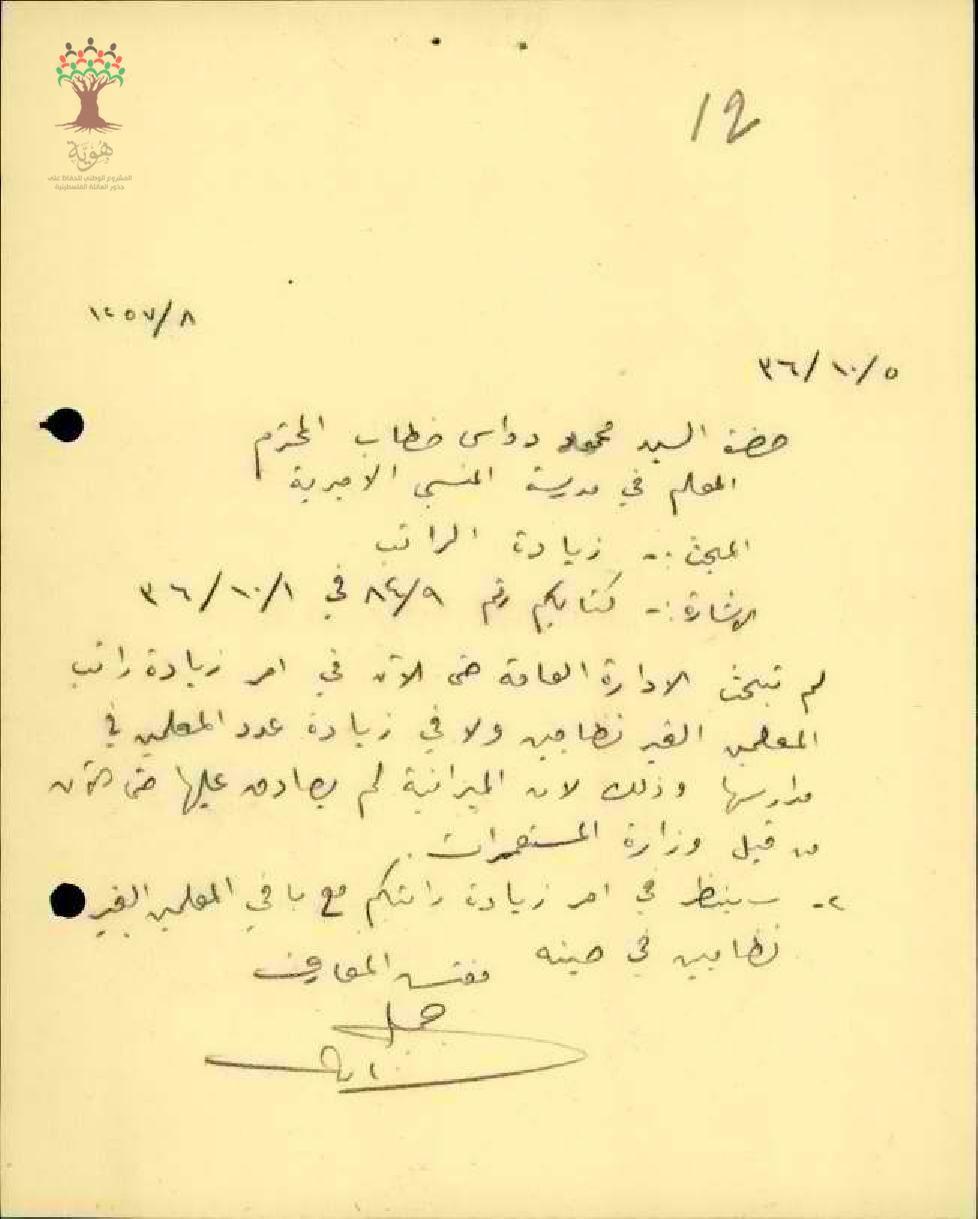 هُوِيَّة
المشروع الوطني للحفاظ على
جذور العائلة الفلسطينية
12
١٢٥٧/٨
٣٦/١٠/٥
حضرة السيد محمود دواس خطاب المحترم
المعلم في مدرسة المنسي الاميرية
المبحث :- زيادة الراتب
الاشارة :- كتابكم رقم ٨٤/٩ في ٣٦/١٠/١
لم تبحث الادارة العامة حتى الآن في امر زيادة راتب
المعلمين الغير نظاميين ولا في زيادة عدد المعلمين في
مدارسها وذلك لان الميزانية لم يصادق عليها حتى الآن
من قبل وزارة المستعمرات.
٢- سينظر في امر زيادة راتبكم مع باقي المعلمين الغير
نظاميين في حينه
مفتش المعارف
جميل